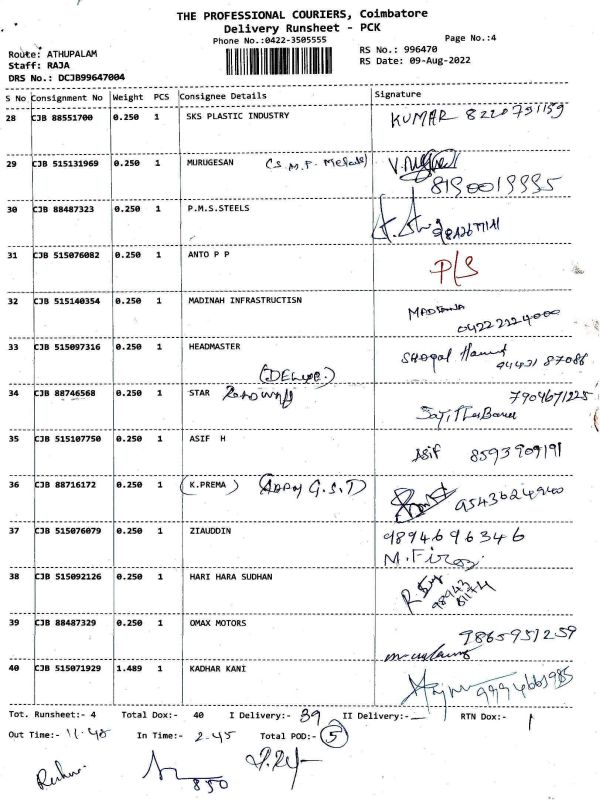 THE PROFESSIONAL COURIERS, Coimbatore
Delivery Runsheet - PCK
Phone No.:0422-3505555
Page No.:4
Route: ATHUPALAM
RS No.: 996470
Staff: RAJA
RS Date: 09-Aug-2022
DRS No.: DCJB99647004
S No Consignment No Weight PCS Consignee Details Signature
28 CJB 88551700 0.250 1 SKS PLASTIC INDUSTRY KUMAR 8220751159
29 CJB 515131969 0.250 1 MURUGESAN 8190019995
30 CJB 88487323 0.250 1 P.M.S.STEELS
31 CJB 515076082 0.250 1 ANTO P P P/S
32 CJB 515140354 0.250 1 MADINAH INFRASTRUCTISN
04222224000
33 CJB 515097316 0.250 1 HEADMASTER
94431 87086
34 CJB 88746568 0.250 1 STAR 7904671225
35 CJB 515107750 0.250 1 ASIF H Asif 8593909191
36 CJB 88716172 0.250 1 (K.PREMA) G.S.T) 9543624940
37 CJB 515076079 0.250 1 ZIAUDDIN 9894696346
38 CJB 515092126 0.250 1 HARI HARA SUDHAN
39 CJB 88487329 0.250 1 OMAX MOTORS 9865951259
40 CJB 515071929 1.489 1 KADHAR KANI
Tot. Runsheet:- 4 Total Dox:- 40 I Delivery:- 39 II Delivery:- RTN Dox:- 1
Out Time:- 11.45 In Time:- 2.45 Total POD:- 5
850